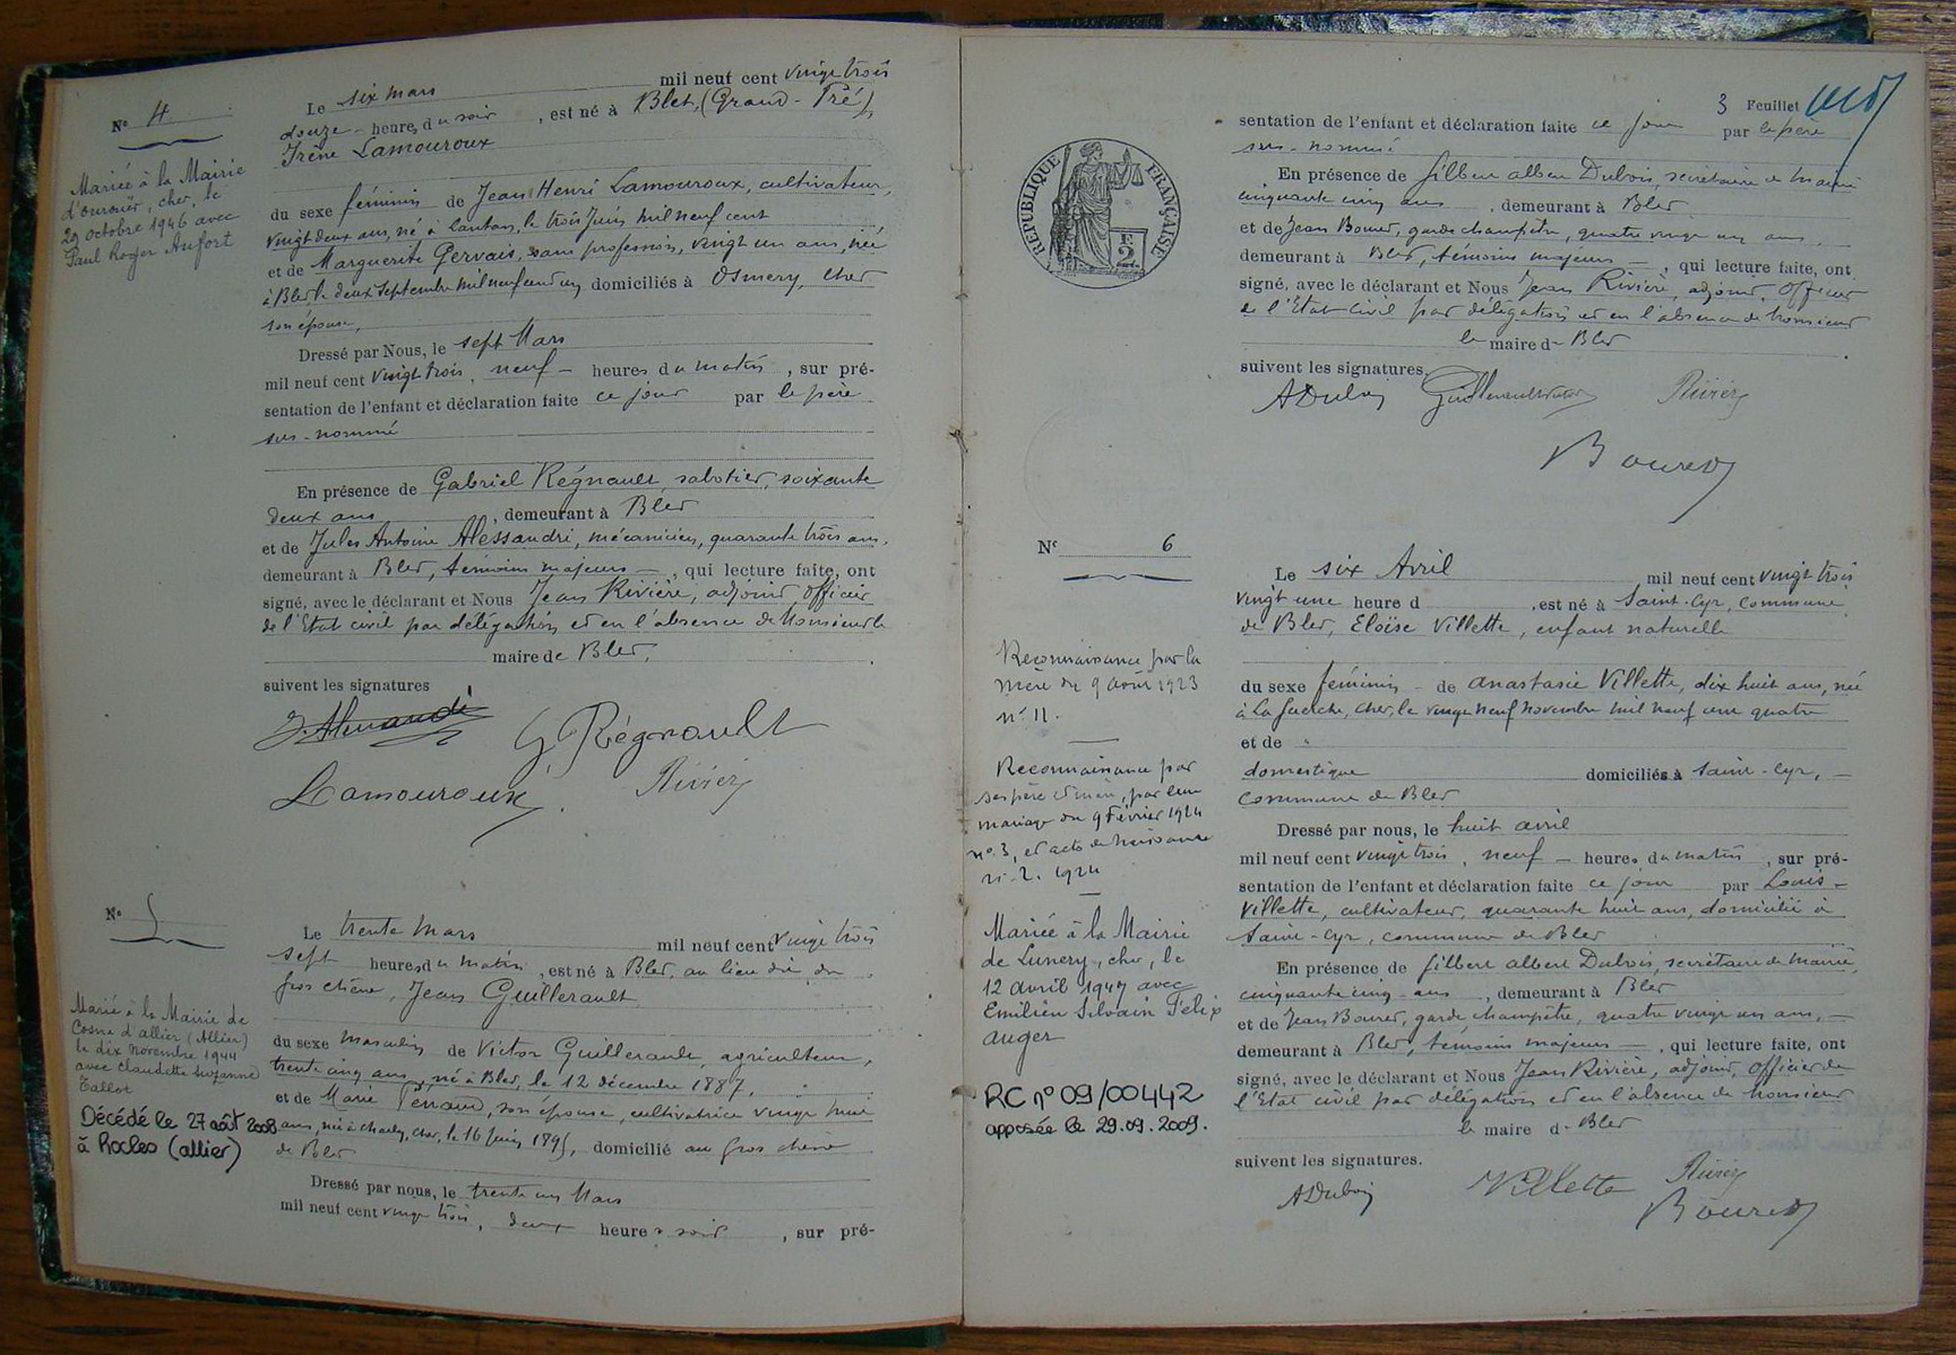 Nº 4
Mariée à la Mairie
d'ourouër, cher, le
29 octobre 1946 avec
Paul Roger Aufort
Le six mars mil neuf cent vingt trois
douze heures du soir, est né à Blet, (Grand-Pré),
Irène Lamouroux
du sexe féminin de Jean Henri Lamouroux, cultivateur,
vingt deux ans, né à le trois Juin mil neuf cent
et de Marguerite Gervais, sans profession, vingt un ans, née
à Blet, le deux Septembre mil neuf cent un domiciliés à Osmery, Cher
son épouse,
Dressé par Nous, le sept Mars
mil neuf cent vingt trois, neuf heures du matin, sur pré-
sentation de l'enfant et déclaration faite ce jour par le père
sus-nommé
En présence de Gabriel Régnault, sabotier, soixante
deux ans, demeurant à Blet
et de Jules Antoine Alessandri, mécanicien, quarante trois ans,
demeurant à Blet, témoins majeurs, qui lecture faite, ont
signé, avec le déclarant et Nous Jean Rivière, adjoint, officier
de l'Etat civil par délégation et en l'absence de Monsieur le
maire de Blet.
suivent les signatures
G. Régnault
Lamouroux Rivière
Nº 5
Marié à la Mairie de
Cosne d'allier (Allier)
le dix novembre 1944
avec Claudette Suzanne
Tallot
Décédé le 27 août 2008
à Rocles (allier)
Le trente Mars mil neuf cent vingt trois
sept heures du matin, est né à Blet, au lieu dit du
gros chêne, Jean Guillerault
du sexe masculin de Victor Guillerault, agriculteur,
trente cinq ans, né à Blet, le 12 décembre 1887,
et de Marie Perraud, son épouse, cultivatrice vingt huit
ans, née à Charly, Cher, le 16 Juin 1895, domicilié au gros chêne
de Blet
Dressé par nous, le trente un Mars
mil neuf cent vingt trois, deux heures soir, sur pré-
3 Feuillet
RÉPUBLIQUE FRANÇAISE
E
2
sentation de l'enfant et déclaration faite ce jour par le père
sus-nommé
En présence de Gilbert albert Dubois, secrétaire de mairie
cinquante cinq ans, demeurant à Blet
et de Jean Bouret, garde champêtre, quatre vingt un ans
demeurant à Blet, témoins majeurs, qui lecture faite, ont
signé, avec le déclarant et Nous Jean Rivière, adjoint, officier
de l'Etat civil par délégation et en l'absence de Monsieur
le maire de Blet
suivent les signatures.
ADubois Guillerault Rivière
Bouret
Nº 6
Reconnaissance par la
mère du 9 août 1923
nº 11.
Reconnaissance par
ses père et mère, par leur
mariage du 9 Février 1924
nº 3, et acte de naissance
1924
Mariée à la Mairie
de Lunery, cher, le
12 avril 1947 avec
Emilien Silvain Félix
auger
RC nº 09/00442
apposée le 29.09.2009.
Le six Avril mil neuf cent vingt trois
vingt une heure d, est né à Saint-Cyr, commune
de Blet, Eloïse Villette, enfant naturelle
du sexe féminin de anastasie Villette, dix huit ans, née
à La Guerche, Cher, le vingt neuf Novembre mil neuf cent quatre
et de
domestique domiciliés à Saint-Cyr,
commune de Blet
Dressé par nous, le huit avril
mil neuf cent vingt trois, neuf heures du matin, sur pré-
sentation de l'enfant et déclaration faite ce jour par Louis
Villette, cultivateur, quarante huit ans, domicilié à
Saint-Cyr, commune de Blet
En présence de Gilbert albert Dubois, secrétaire de mairie,
cinquante cinq ans, demeurant à Blet
et de Jean Bouret, garde champêtre, quatre vingt un ans,
demeurant à Blet, témoins majeurs, qui lecture faite, ont
signé, avec le déclarant et Nous Jean Rivière, adjoint, officier de
l'Etat civil par délégation et en l'absence de Monsieur
le maire de Blet
suivent les signatures.
ADubois Villette Rivière
Bouret